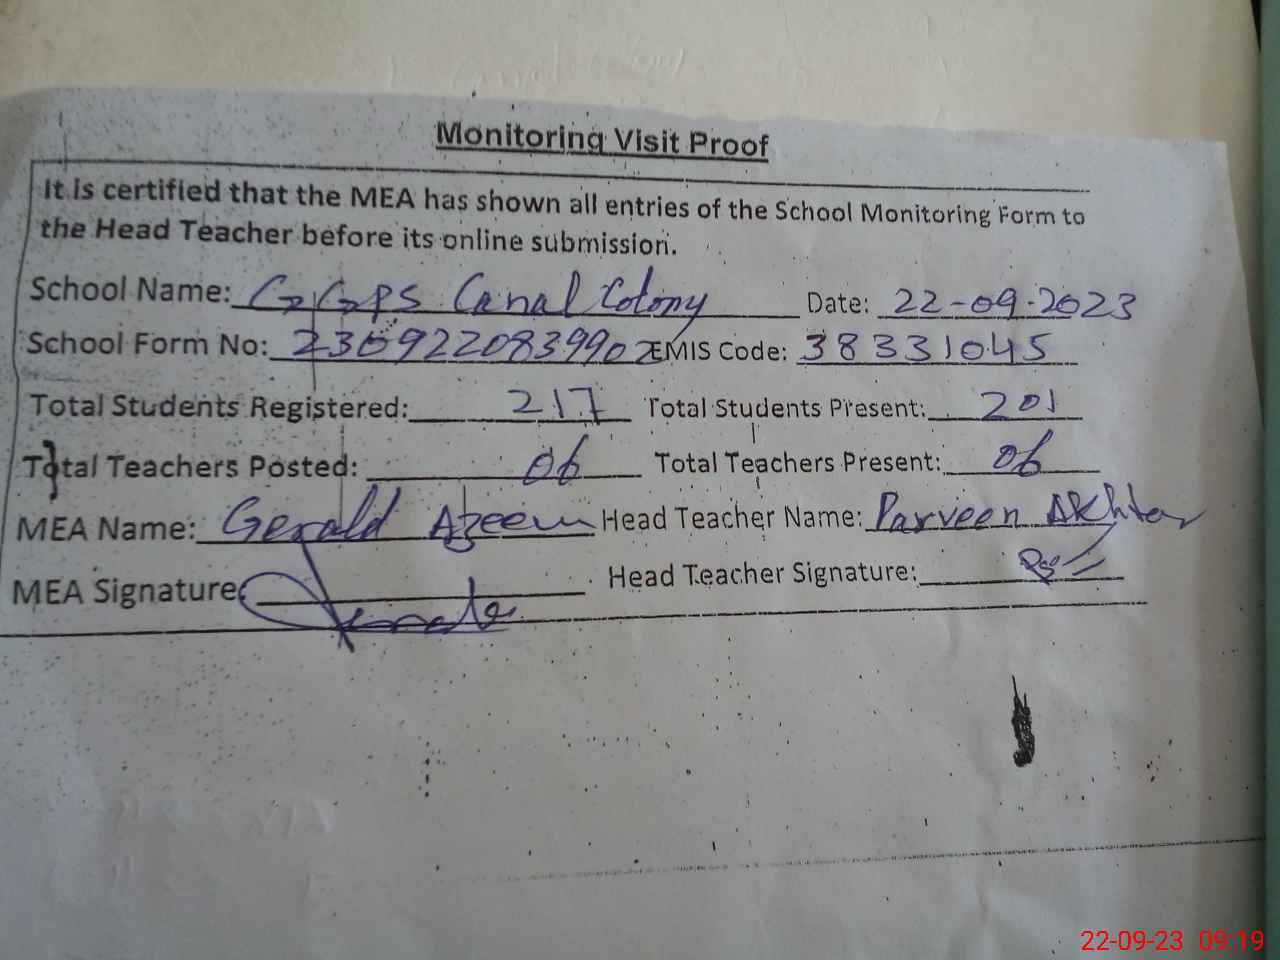 Monitoring Visit Proof
It is certified that the MEA has shown all entries of the School Monitoring Form to
the Head Teacher before its online submission.
School Name: GGPS Canal Colony Date: 22-09-2023
School Form No: 2309220839902 EMIS Code: 38331045
Total Students Registered: 217 Total Students Present: 201
Total Teachers Posted: 06 Total Teachers Present: 06
MEA Name: Gerald Azeem Head Teacher Name: Parveen Akhtar
MEA Signature Head Teacher Signature:
22-09-23 09:19